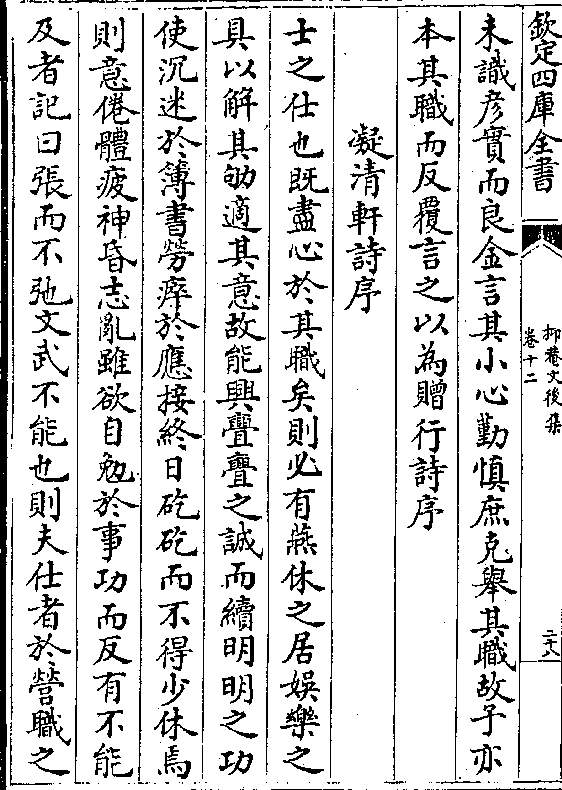 欽定四庫全書
抑菴文後集
卷十二
二十八
未識彥實而良金言其小心勤慎庶克舉其職故予亦
本其職而反覆言之以為贈行詩序
凝清軒詩序
士之仕也既盡心於其職矣則必有燕休之居娛樂之
具以解其劬適其意故能興亹亹之誠而續明明之功
使沉迷於簿書勞瘁於應接終日矻矻而不得少休焉
則意倦體疲神昏志亂雖欲自勉於事功而反有不能
及者記曰張而不弛文武不能也則夫仕者於營職之